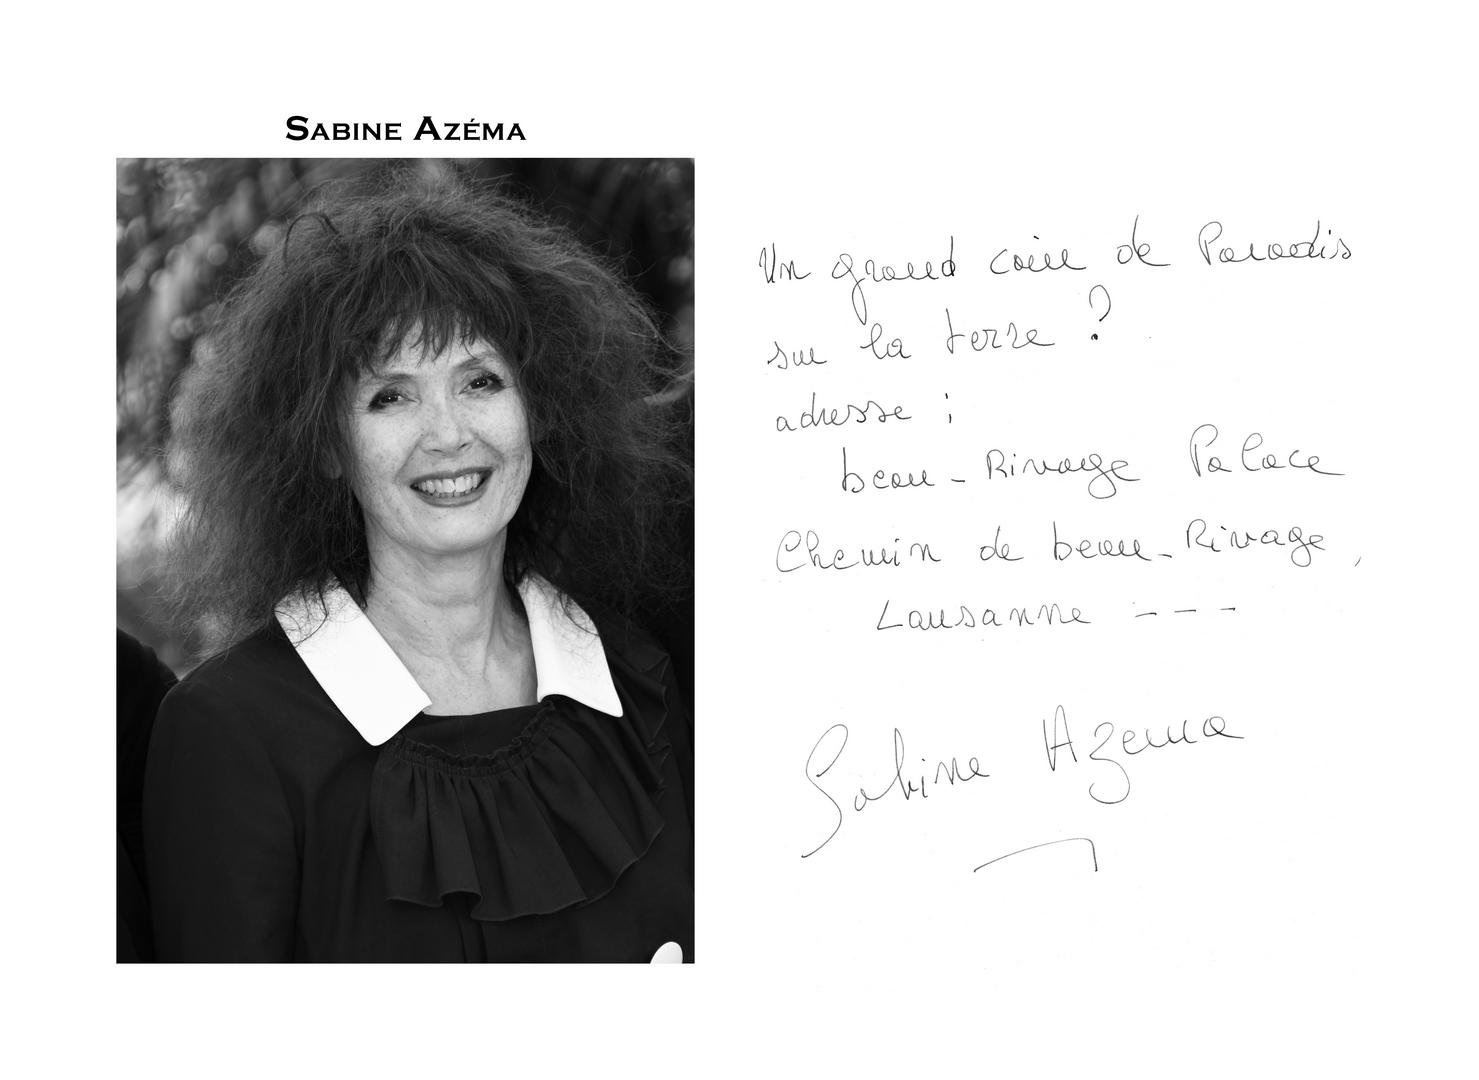 SABINE AZÉMA
Un grand coin de Paradis
sur la terre ?
adresse :
beau-Rivage Palace
Chemin de beau-Rivage,
Lausanne ---
Sabine Azema